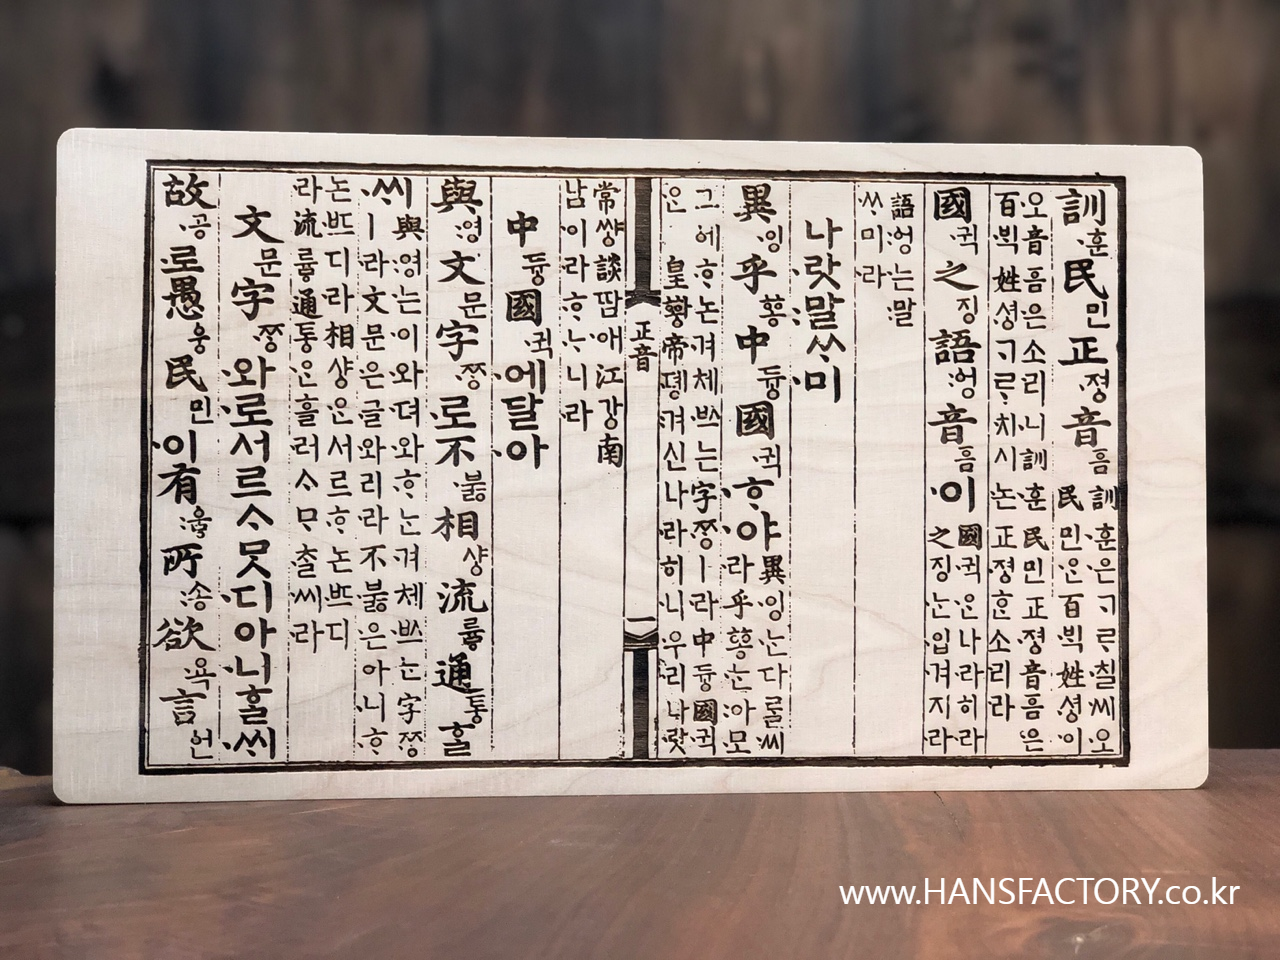 訓훈民민正졍音ᅙᅳᆷ
訓훈은ᄀᆞᄅᆞ칠씨오
民민ᄋᆞᆫ百ᄇᆡᆨ姓셩이
오音ᅙᅳᆷ은소리니訓훈民민正졍音ᅙᅳᆷ은
百ᄇᆡᆨ姓셩ᄀᆞᄅᆞ치시논正졍ᄒᆞᆫ소리라
國귁之징語ᅌᅥᆼ音ᅙᅳᆷ이
國귁ᄋᆞᆫ나라히라
之징ᄂᆞᆫ입겨지라
語ᅌᅥᆼ는말
ᄊᆞ미라
나랏말ᄊᆞ미
異잉乎ᅘᅩᆼ中듀ᇰ國귁ᄒᆞ야
異잉ᄂᆞᆫ다ᄅᆞᆯ씨
라乎ᅘᅩᆼᄂᆞᆫ아모
그에ᄒᆞ논겨체ᄡᅳ는字ᄍᆞᆼㅣ라中듀ᇰ國귁
ᄋᆞᆫ皇ᅘᅪᆼ帝뎽겨신나라히니우리나랏
正音
一
常쌰ᇰ談땀애江강南
남이라ᄒᆞᄂᆞ니라
中듀ᇰ國귁에달아
與영文문字ᄍᆞᆼ로不부ᇙ相샤ᇰ流류ᇢ通토ᇰᄒᆞᆯ
ᄊᆡ
與영는이와뎌와ᄒᆞᄂᆞᆫ겨체ᄡᅳᄂᆞᆫ字ᄍᆞᆼ
ㅣ라文문은글와리라不부ᇙ은아니ᄒᆞ
논ᄠᅳ디라相샤ᇰᄋᆞᆫ서르ᄒᆞ논ᄠᅳ디
라流류ᇢ通토ᇰᄋᆞᆫ흘러ᄉᆞᄆᆞᄎᆞᆯ씨라
文문字ᄍᆞᆼ와로서르ᄉᆞᄆᆞᆺ디아니ᄒᆞᆯᄊᆡ
故공로愚ᅌᅮᆼ民민이有ᅌᅮᇢ所송欲욕言언
www.HANSFACTORY.co.kr